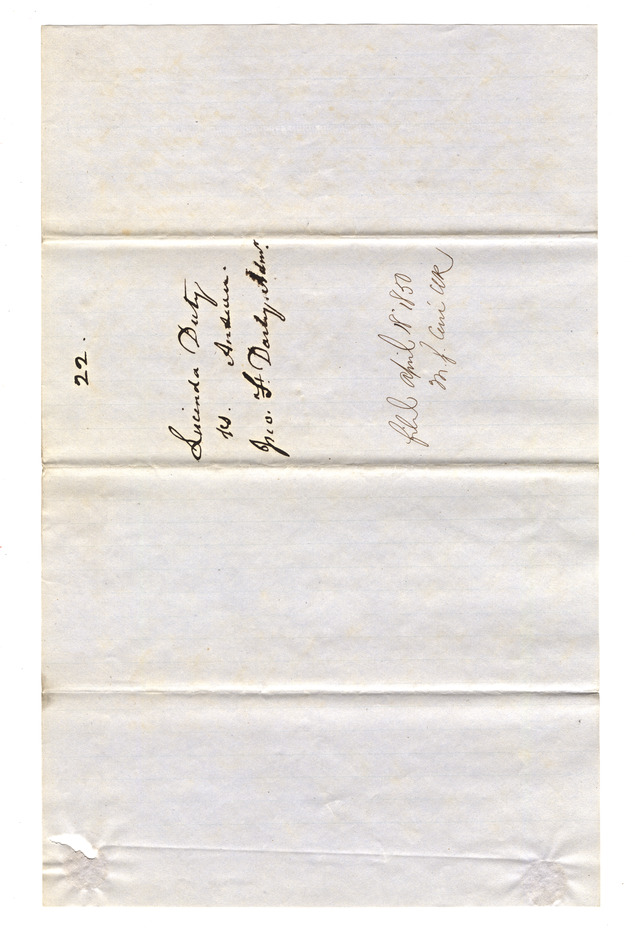 22.
Lucinda Duty
vs. Answer.
Jno. F. Darby, Admr.
filed April 18" 1850